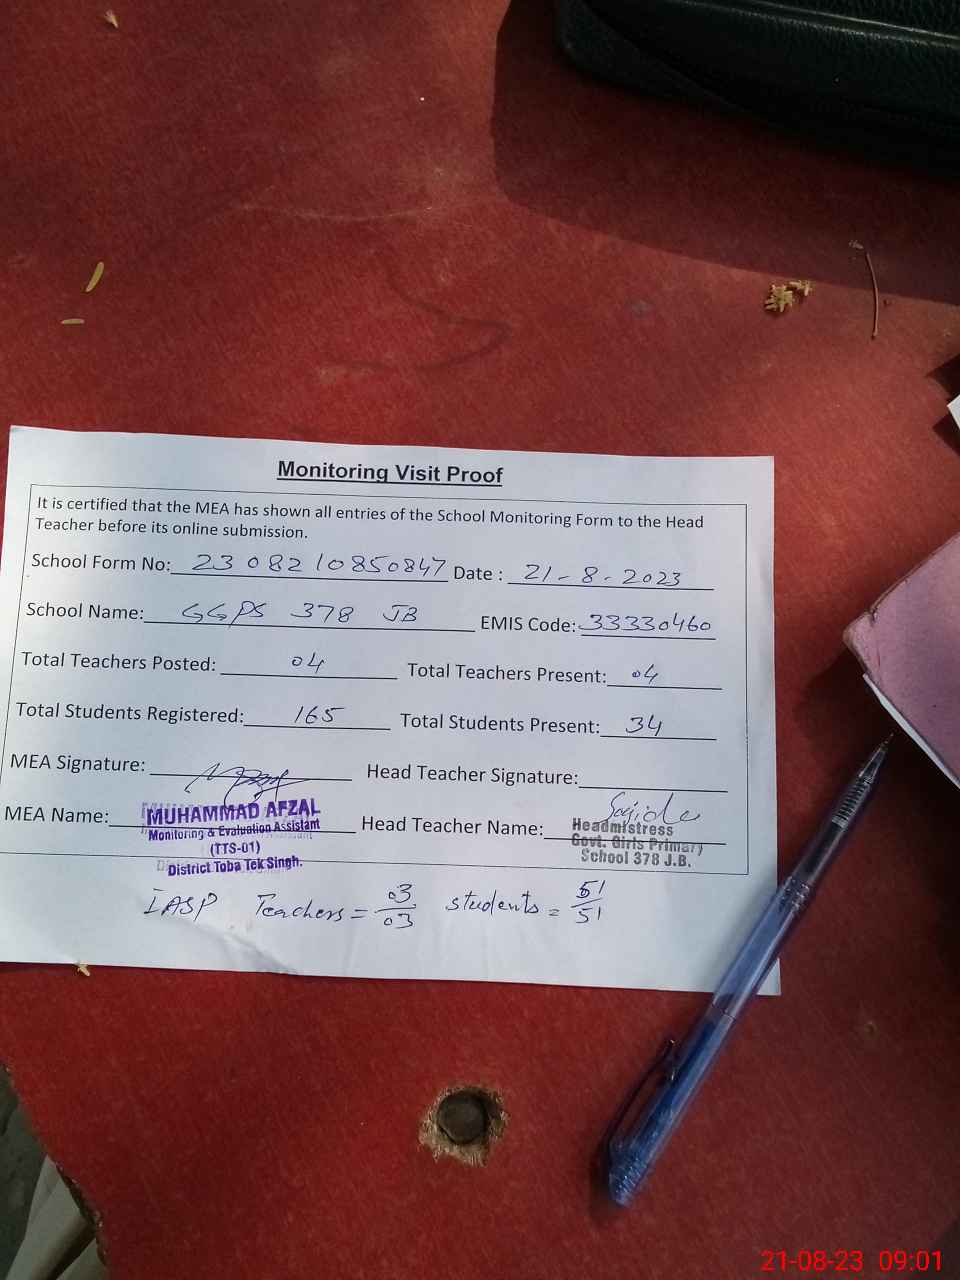 Monitoring Visit Proof
It is certified that the MEA has shown all entries of the School Monitoring Form to the Head
Teacher before its online submission.
School Form No: 2308210850847 Date : 21-8-2023
School Name: GGPS 378 JB EMIS Code: 33330460
Total Teachers Posted: 04 Total Teachers Present: 04
Total Students Registered: 165 Total Students Present: 34
MEA Signature: Head Teacher Signature:
Sajida
MEA Name: MUHAMMAD AFZAL Head Teacher Name: Headmistress
Monitoring & Evaluation Assistant Govt. Girls Primary
(TTS-01) School 378 J.B.
District Toba Tek Singh.
IASP Teachers = 03/03 students = 51/51
21-08-23 09:01